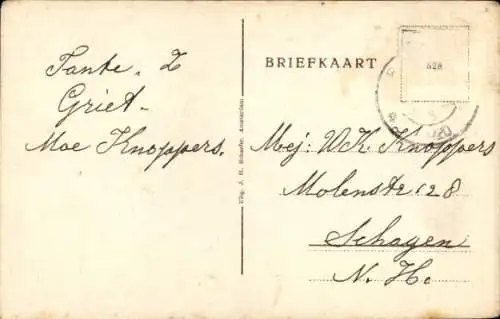 Tante. Z
Griet-
Moe Knoppers.
BRIEFKAART
Uitg. J. H. Schaefer, Amsterdam
828
Mej: W.K. Knoppers
Molenstr 28
Schagen
N. H.